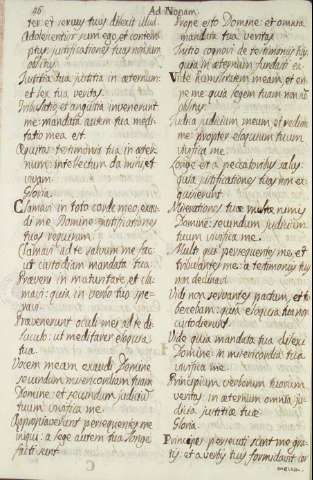 46
Ad Nonam.
ter et servus tuus dilexit illud.
Adolescentulus sum ego et contem
ptus justificationes tuas non sum
oblitus.
Justitia tua justitia in æternum:
et lex tua veritas.
Tribulatio et angustia invenerunt
me: mandata autem tua medi-
tatio mea est.
Æquitas testimonia tua in æter-
num: intellectum da mihi, et
vivam.
Gloria.
Clamavi in toto corde meo, exau-
di me Domine: justificationes
tuas requiram.
Clamavi ad te salvum me fac:
ut custodiam mandata tua.
Præveni in maturitate, et cla-
mavi: quia in verba tua spe-
ravi.
Prævenerunt oculi mei ad te di-
luculo: ut meditarer eloquia
tua.
Vocem meam exaudi Domine
secundum misericordiam tuam
Domine: et secundum judicium
tuum vivifica me.
Appropinquaverunt persequentes me
iniqui: a lege autem tua longe
facti sunt.
Prope esto Domine: et omnia
mandata tua veritas
Initio cognovi de testimoniis tuis
quia in æternum fundasti ea.
Vide humilitatem meam et eri-
pe me quia legem tuam non sum
oblitus.
Judica judicium meum, et redime
me: propter eloquium tuum
vivifica me.
Longe est a peccatoribus salus
quia justificationes tuas non ex-
quisierunt.
Misericordiæ tuæ multæ nimis
Domine: secundum judicium
tuum vivifica me.
Multi qui persequuntur me, et
tribulant me: a testimoniis tuis
non declinavi.
Vidi non servantes pactum, et ta-
bescebam: quia eloquia tua non
custodierunt.
Vide quia mandata tua dilexi
Domine: in misericordia tua
vivifica me.
Principium verborum tuorum
veritas: in æternum omnia ju-
dicia justitiæ tuæ.
Gloria
Principes persecuti sunt me gra-
tis: et a verbis tuis formidavit cor